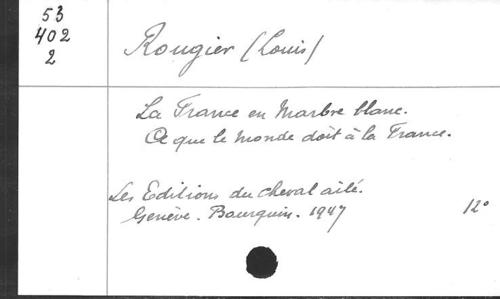 53
402
2
Rougier (Louis)
La France en Marbre blanc.
Ce que le Monde doit à la France.
Les Editions du cheval ailé.
Genève. Bourquin. 1947 12°